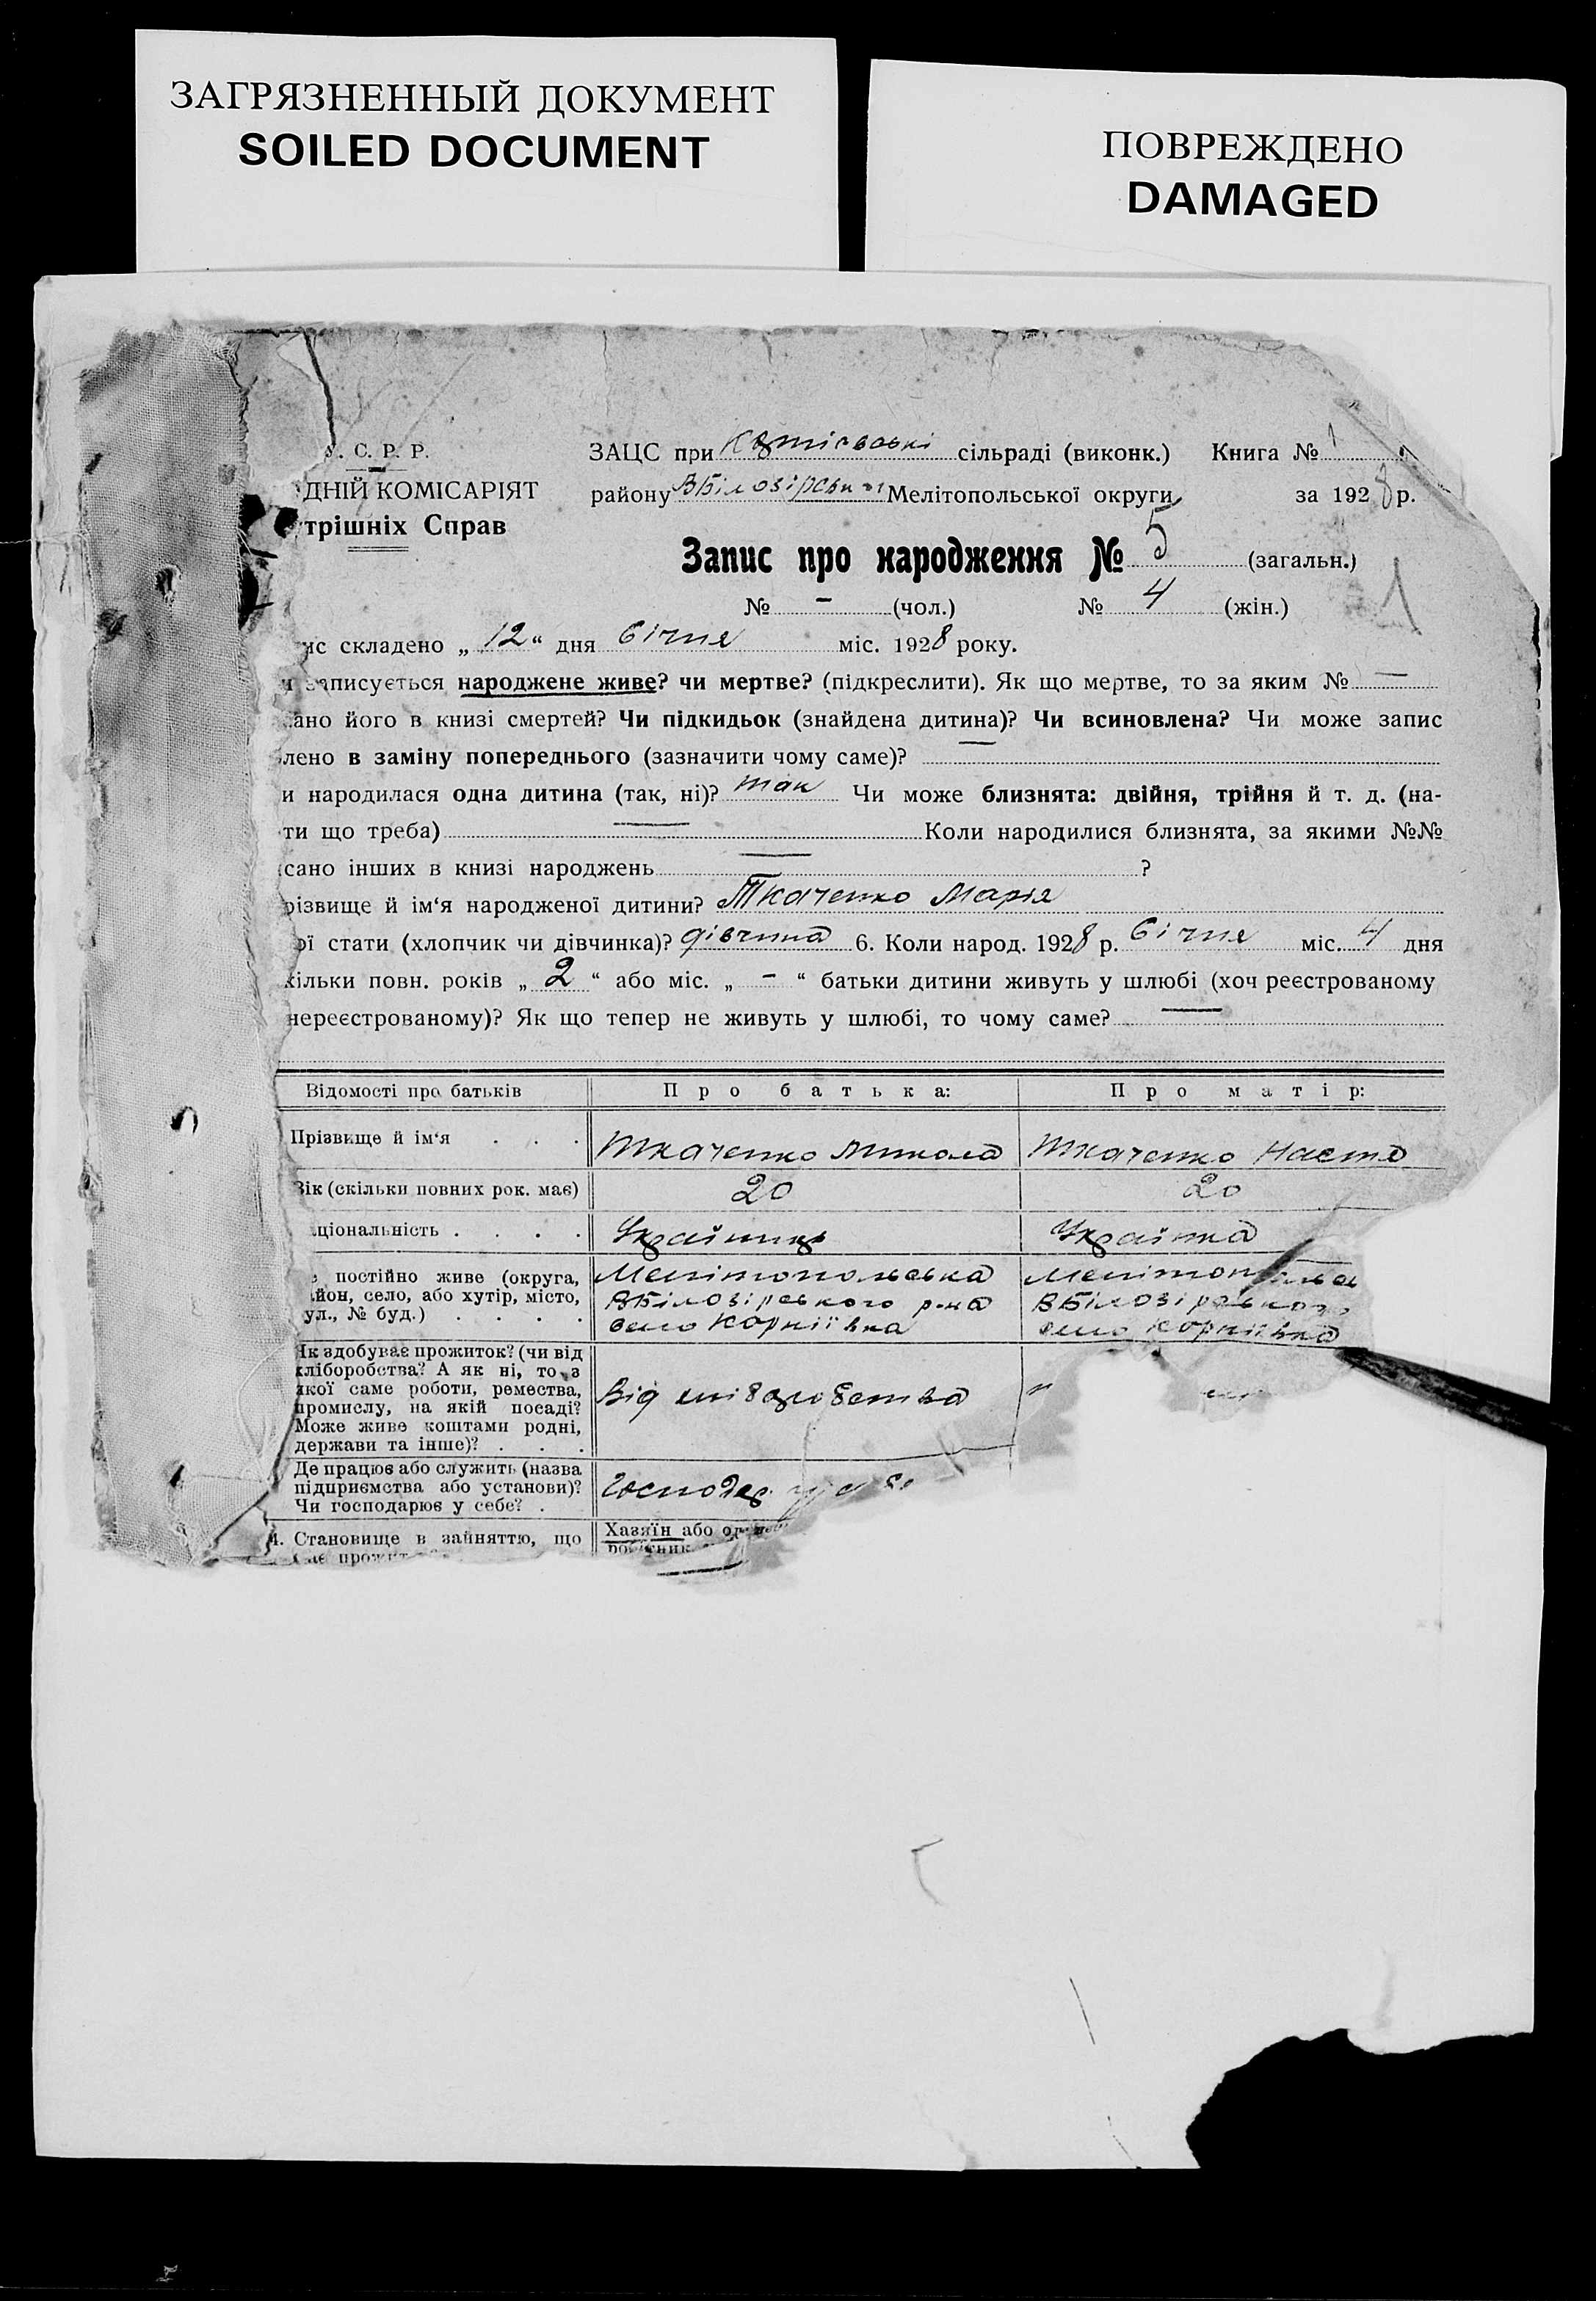 ЗАГРЯЗНЕННЫЙ ДОКУМЕНТ
SOILED DOCUMENT
ПОВРЕЖДЕНО
DAMAGED
. С. Р. Р.
ДНІЙ КОМІСАРІЯТ
трішніх Справ
ЗАЦС при сільраді (виконк.) Книга № 1
району ВБілозірськ Мелітопольської округи за 1928 р.
Запис про народження № 5 (загальн.)
№ - (чол.) № 4 (жін.)
1
ис складено „12“ дня Січня міс. 1928 року.
записується народжене живе? чи мертве? (підкреслити). Як що мертве, то за яким № —
ано його в книзі смертей? Чи підкидьок (знайдена дитина)? Чи всиновлена? Чи може запис
лено в заміну попереднього (зазначити чому саме)? —
и народилася одна дитина (так, ні)? так Чи може близнята: двійня, трійня й т. д. (на-
ти що треба) — Коли народилися близнята, за якими №№
сано інших в книзі народжень — ?
різвище й ім‘я народженої дитини? Ткаченко Марія
ої стати (хлопчик чи дівчинка)? дівчина 6. Коли народ. 1928 р. Січня міс. 4 дня
кільки повн. років „2“ або міс. „-“ батьки дитини живуть у шлюбі (хоч реєстрованому
нереєстрованому)? Як що тепер не живуть у шлюбі, то чому саме? —
Відомості про батьків Про батька: Про матір:
Прізвище й ім‘я . . . Ткаченко Микола Ткаченко Настя
Вік (скільки повних рок. має) 20 20
ціональність . . . . Українець Українка
постійно живе (округа, Мелітопольська Мелітополь
йон, село, або хутір, місто, ВБілозірського р-на ВБілозірського
ул., № буд.) . . . . село Корніївка село Корніївка
Як здобуває прожиток? (чи від
хліборобства? А як ні, то з
якої саме роботи, ремества, Від хліборобства
промислу, на якій посаді?
Може живе коштами родні,
держави та інше)? . . .
Де працює або служить (назва
підприємства або установи)? Господар
Чи господарює у себе? .
4. Становище в зайняттю, що Хазяїн або